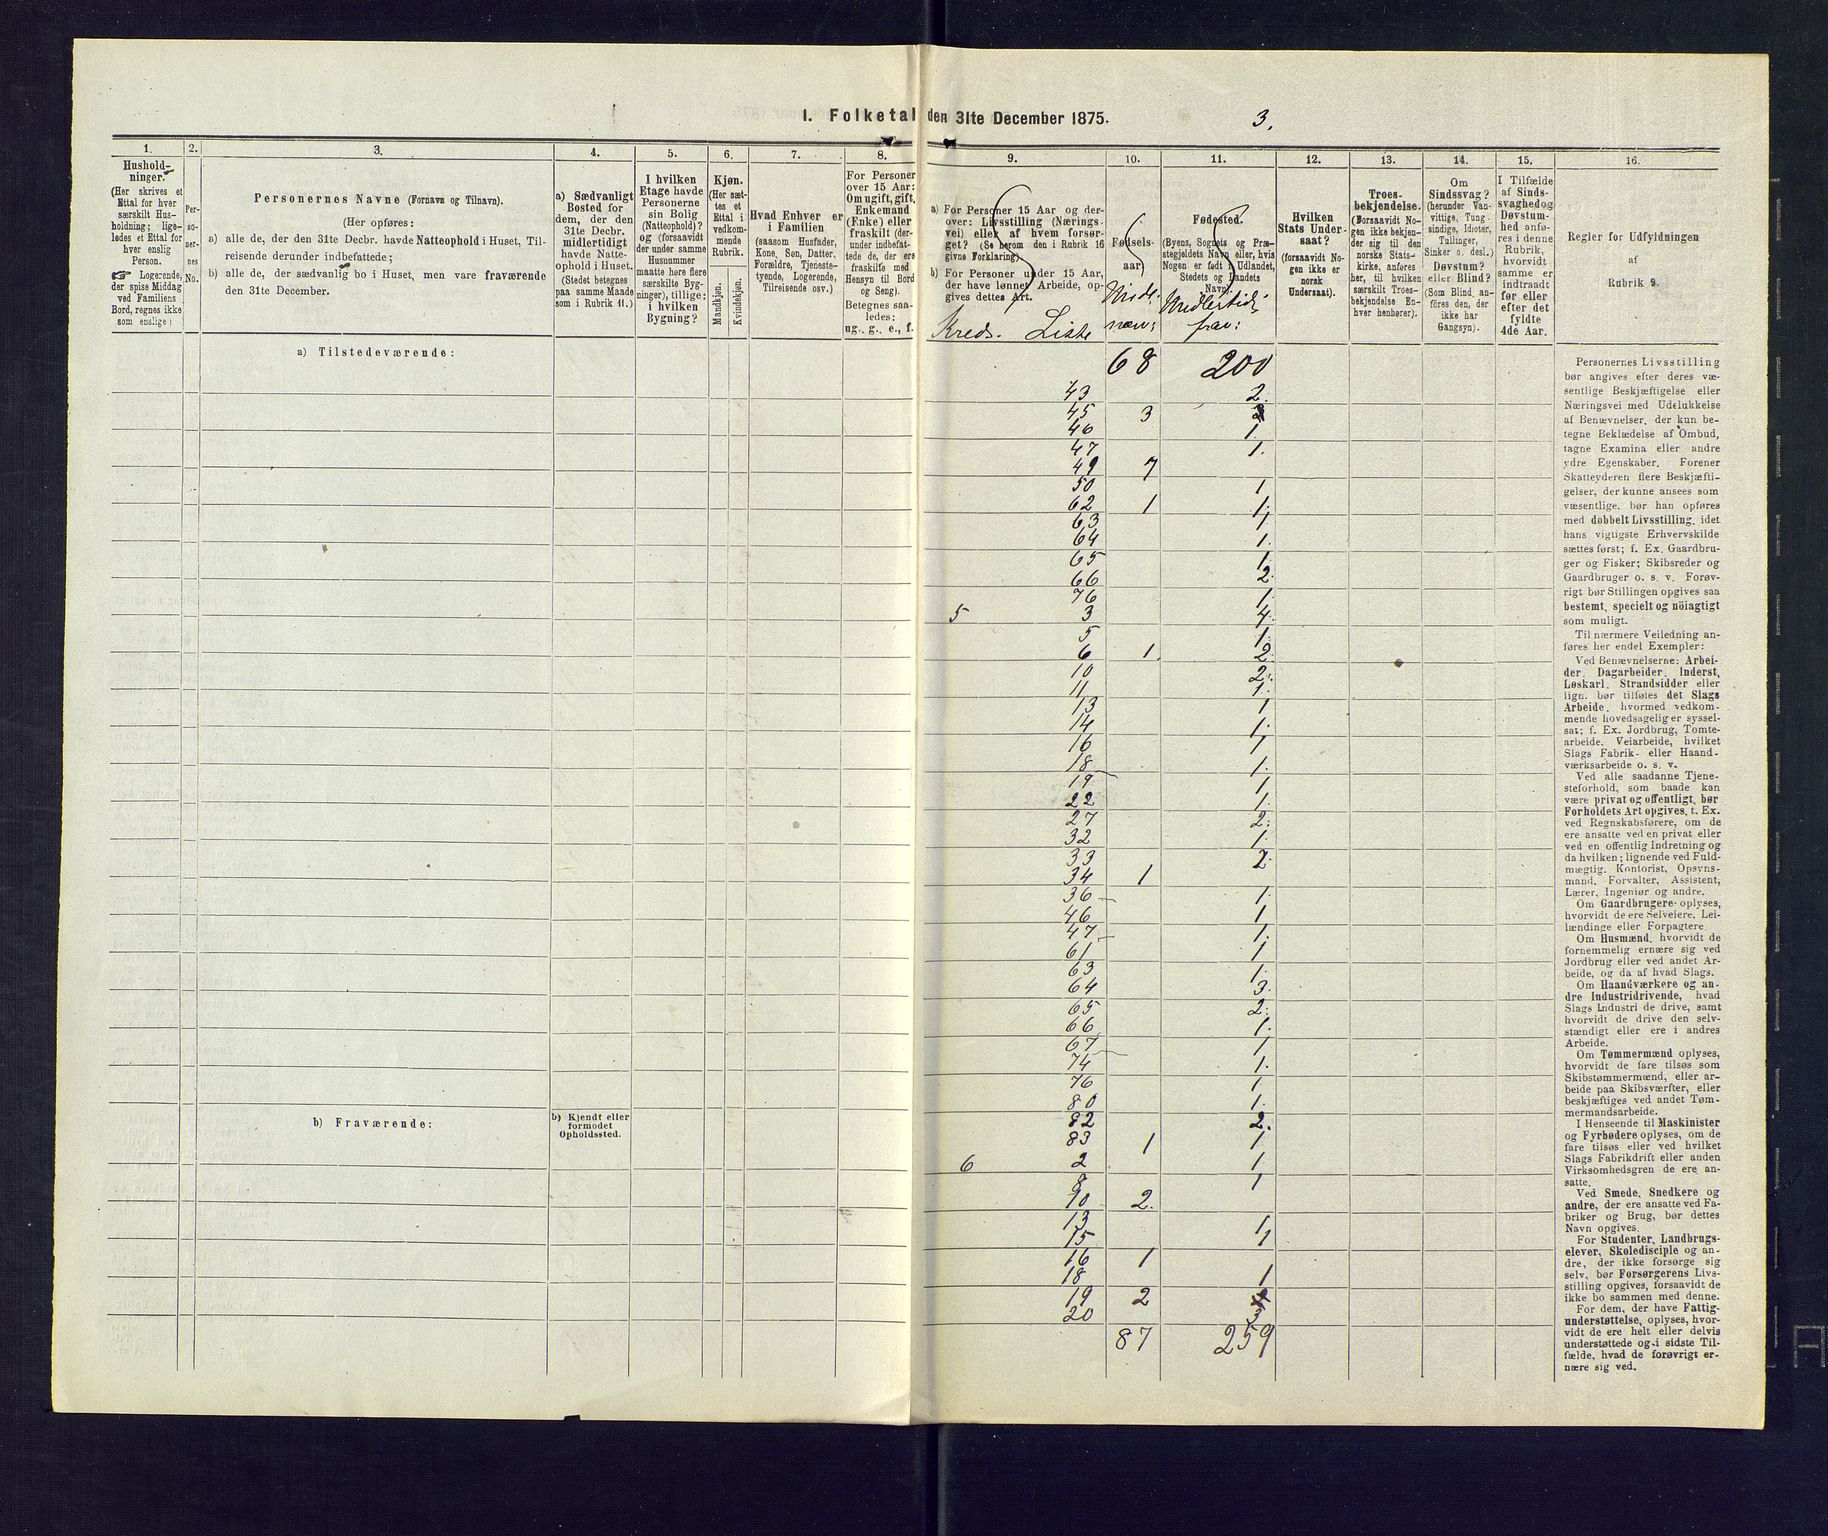 I. Folketal den 31te December 1875.
3.
1.
Hushold-
ninger.
(Her skrives et
Ettal for hver
særskilt Hus-
holdning; lige-
ledes et Ettal for
hver enslig
Person.
☞ Logerende,
der spise Middag
ved Familiens
Bord, regnes ikke
som enslige)
2.
Per-
so-
ner-
nes
No.
3.
Personernes Navne (Fornavn og Tilnavn).
(Her opføres:
a) alle de, der den 31te Decbr. havde Natteophold i Huset, Til-
reisende derunder indbefattede;
b) alle de, der sædvanlig bo i Huset, men vare fraværende
den 31te December.
4.
a) Sædvanligt
Bosted for
dem, der den
31te Decbr.
midlertidigt
havde Natte-
ophold i Huset.
(Stedet betegnes
paa samme Maade
som i Rubrik 11.)
5.
I hvilken
Etage havde
Personerne
sin Bolig
(Natteophold)?
og (forsaavidt
der under samme
Husnummer
maatte høre flere
særskilte Byg-
ninger), tillige:
i hvilken
Bygning?
6.
Kjøn.
(Her sæt-
tes et
Ettal i
vedkom-
mende
Rubrik.
Mandkjøn.
Kvindekjøn.
7.
Hvad Enhver er
i Familien
(saasom Husfader,
Kone, Søn, Datter,
Forældre, Tjeneste-
tyende, Logerende,
Tilreisende osv.)
8.
For Personer
over 15 Aar:
Om ugift, gift,
Enkemand
(Enke) eller
fraskilt (der-
under indbefat-
tede de, der ere
fraskilte med
Hensyn til Bord
og Seng)
Betegnes saa-
ledes:
ug., g., e., f.
9.
a) For Personer 15 Aar og der-
over: Livsstilling (Nærings-
vei) eller af hvem forsør-
get? (Se herom den i Rubrik 16
givne Forklaring)
b) For Personer under 15 Aar,
der have lønnet Arbeide, op-
gives dettes Art.
Kreds. Liste
10.
Fødsels-
aar.
11.
Fødested.
(Byens, Sognets og Præ-
stegjeldets Navn eller, hvis
Nogen er født i Udlandet,
Stedets og Landets
Navn).
Midlertid.
frav:
12.
Hvilken
Stats Under-
saat?
(forsaavidt No-
gen ikke er
norsk
Undersaat).
13.
Troes-
bekjendelse.
(Forsaavidt No-
gen ikke bekjen-
der sig til den
norske Stats-
kirke, anføres
her, til hvilken
særskilt Troes-
bekjendelse En-
hver henhører).
14.
Om
Sindssvag?
(herunder Van-
vittige, Tung-
sindige, Idioter,
Tullinger,
Sinker o. desl.)
Døvstum?
eller Blind?
(Som Blind, an-
føres den, der
ikke har
Gangsyn).
15.
I Tilfælde
af Sinds-
svaghed og
Døvstum-
hed anfø-
res i denne
Rubrik,
hvorvidt
samme er
indtraadt
før eller
efter det
fyldte
4de Aar.
16.
Regler for Udfyldningen
af
Rubrik 9.
a) Tilstedeværende:
68 200
43 2.
45 3
46 1.
47 1.
49 7
50 1
62 1 1.
63 1
64 1.
65 1.
66 2.
76 1.
5 3 4.
5 1.
6 1. 2.
10 2.
11 1.
13 1
14 1.
16 1
18 1.
19 1
22 1.
27 2.
32 1.
33 2.
34 1
36 1.
46 1
47 1.
61 1
63 1.
64 3.
65 2.
66 1.
67 1
74 1.
76 1.
80 1.
82 2.
83 1 1.
6 2 1
8 1
10 2.
13 1
15 1
16 1
18 1
19 2
20 3
87 259
b) Fraværende:
b) Kjendt eller
formodet
Opholdssted.
Personernes Livsstilling
bør angives efter deres væ-
sentlige Beskjæftigelse eller
Næringsvei med Udelukkelse
af Benævnelser, der kun be-
tegne Beklædelse af Ombud,
tagne Examina eller andre
ydre Egenskaber. Forener
Skatteyderen flere Beskjæfti-
gelser, der kunne ansees som
væsentlige, bør han opføres
med dobbelt Livsstilling, idet
hans vigtigste Erhvervskilde
sættes først; f. Ex. Gaardbru-
ger og Fisker; Skibsreder og
Gaardbruger o. s. v. Forøv-
rigt bør Stillingen opgives saa
bestemt, specielt og nöiagtigt
som muligt.
Til nærmere Veiledning an-
føres her endel Exempler:
Ved Benævnelserne: Arbei-
der, Dagarbeider, Inderst,
Løskarl, Strandsidder eller
lign. bør tilføies det Slags
Arbeide, hvormed vedkom-
mende hovedsagelig er syssel-
sat; f. Ex. Jordbrug, Tomte-
arbeide, Veiarbeide, hvilket
Slags Fabrik- eller Haand-
værksarbeide o. s. v.
Ved alle saadanne Tjene-
steforhold, som baade kan
være privat og offentligt, bør
Forholdets Art opgives, t. Ex.
ved Regnskabsførere, om de
ere ansatte ved en privat eller
ved en offentlig Indretning og
da hvilken; lignende ved Fuld-
mægtig, Kontorist, Opsyns-
mand, Forvalter, Assistent,
Lærer, Ingeniør og andre.
Om Gaardbrugere oplyses,
hvorvidt de ere Selveiere, Lei-
lændinge eller Forpagtere.
Om Husmænd, hvorvidt de
fornemmelig ernære sig ved
Jordbrug eller ved andet Ar-
beide, og da af hvad Slags.
Om Haandværkere og an-
dre Industridrivende, hvad
Slags Industri de drive, samt
hvorvidt de drive den selv-
stændigt eller ere i andres
Arbeide.
Om Tømmermænd oplyses,
hvorvidt de fare tilsøs som
Skibstømmermænd, eller ar-
beide paa Skibsværfter, eller
beskjæftiges ved andet Tøm-
mermandsarbeide.
I Henseende til Maskinister
og Fyrbødere oplyses, om de
fare tilsøs eller ved hvilket
Slags Fabrikdrift eller anden
Virksomhedsgren de ere an-
satte.
Ved Smede, Snedkere og
andre, der ere ansatte ved Fa-
briker og Brug, bør dettes
Navn opgives.
For Studenter, Landbrugs-
elever, Skoledisciple og an-
dre, der ikke forsørge sig
selv, bør Forsørgerens Livs-
stilling opgives, forsaavidt de
ikke bo sammen med denne.
For dem, der have Fattig-
understøttelse, oplyses, hvor-
vidt de ere helt eller delvis
understøttede og i sidste Til-
fælde, hvad de forøvrigt er-
nære sig ved.